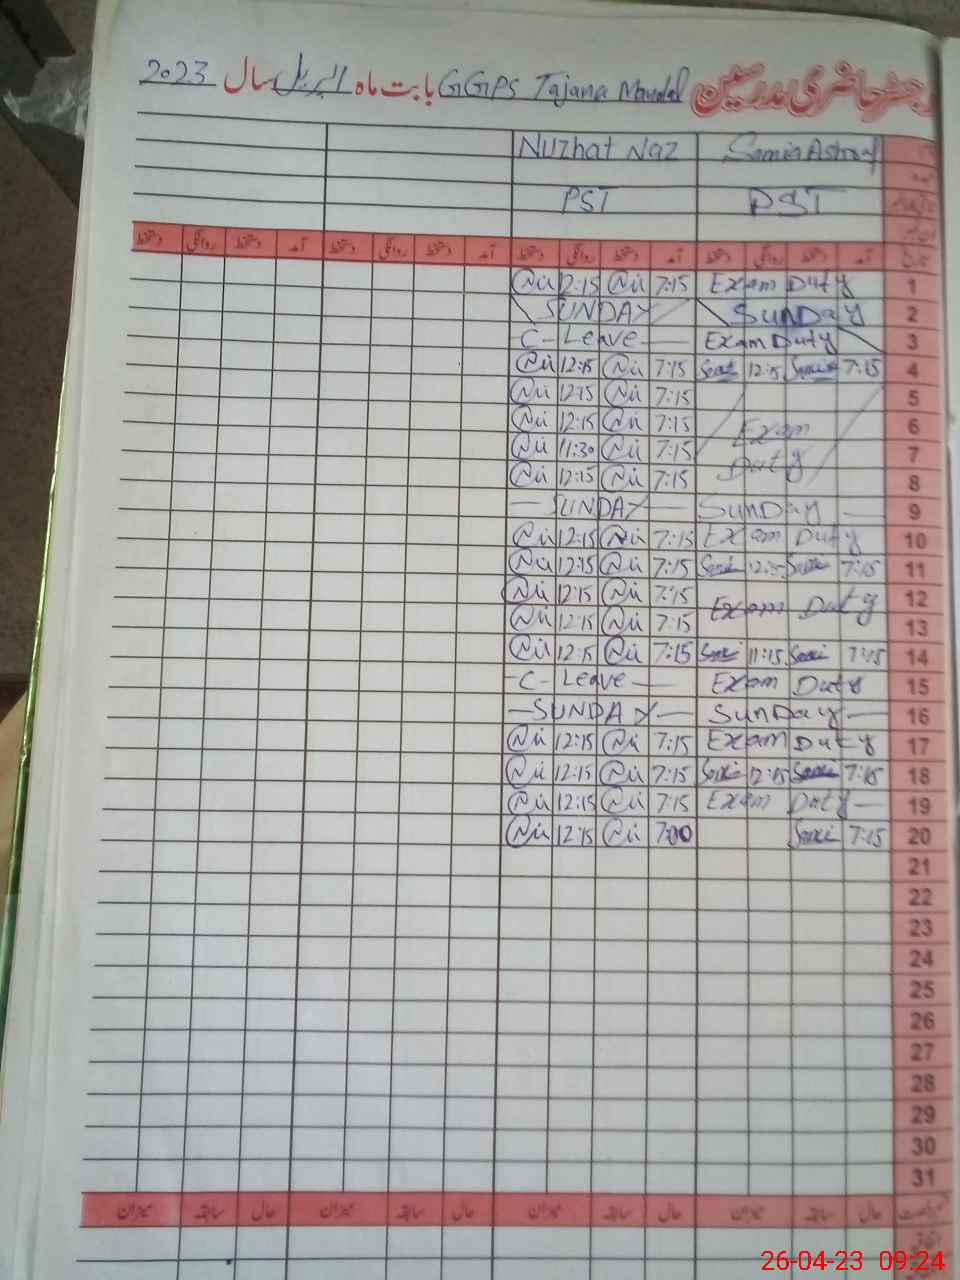 رجسٹر حاضری مدرسین GGPS Tajana Mandal بابت ماہ اپریل سال 2023
Nuzhat Naz
PST PST
دستخط روانگی دستخط آمد دستخط روانگی دستخط آمد دستخط روانگی دستخط آمد دستخط روانگی دستخط آمد تاریخ
12:15 7:15 Exam Duty 1
SUNDAY SunDay 2
C- Leave — Exam Duty 3
12:15 7:15 12:15 7:15 4
12:15 7:15 5
12:15 7:15 Exam 6
11:30 7:15 Duty 7
12:15 7:15 8
— SUNDAY — SunDay — 9
12:15 7:15 Exam Duty 10
12:15 7:15 12:15 7:15 11
12:15 7:15 Exam Duty 12
12:15 7:15 13
12:15 7:15 11:15 7:15 14
-C- Leave — Exam Duty 15
—SUNDAY— SunDay — 16
12:15 7:15 Exam Duty 17
12:15 7:15 12:15 7:15 18
12:15 7:15 Exam Duty — 19
12:15 7:00 7:15 20
21
22
23
24
25
26
27
28
29
30
31
میزان سابقہ حال میزان سابقہ حال میزان سابقہ حال میزان سابقہ حال
26-04-23 09:24